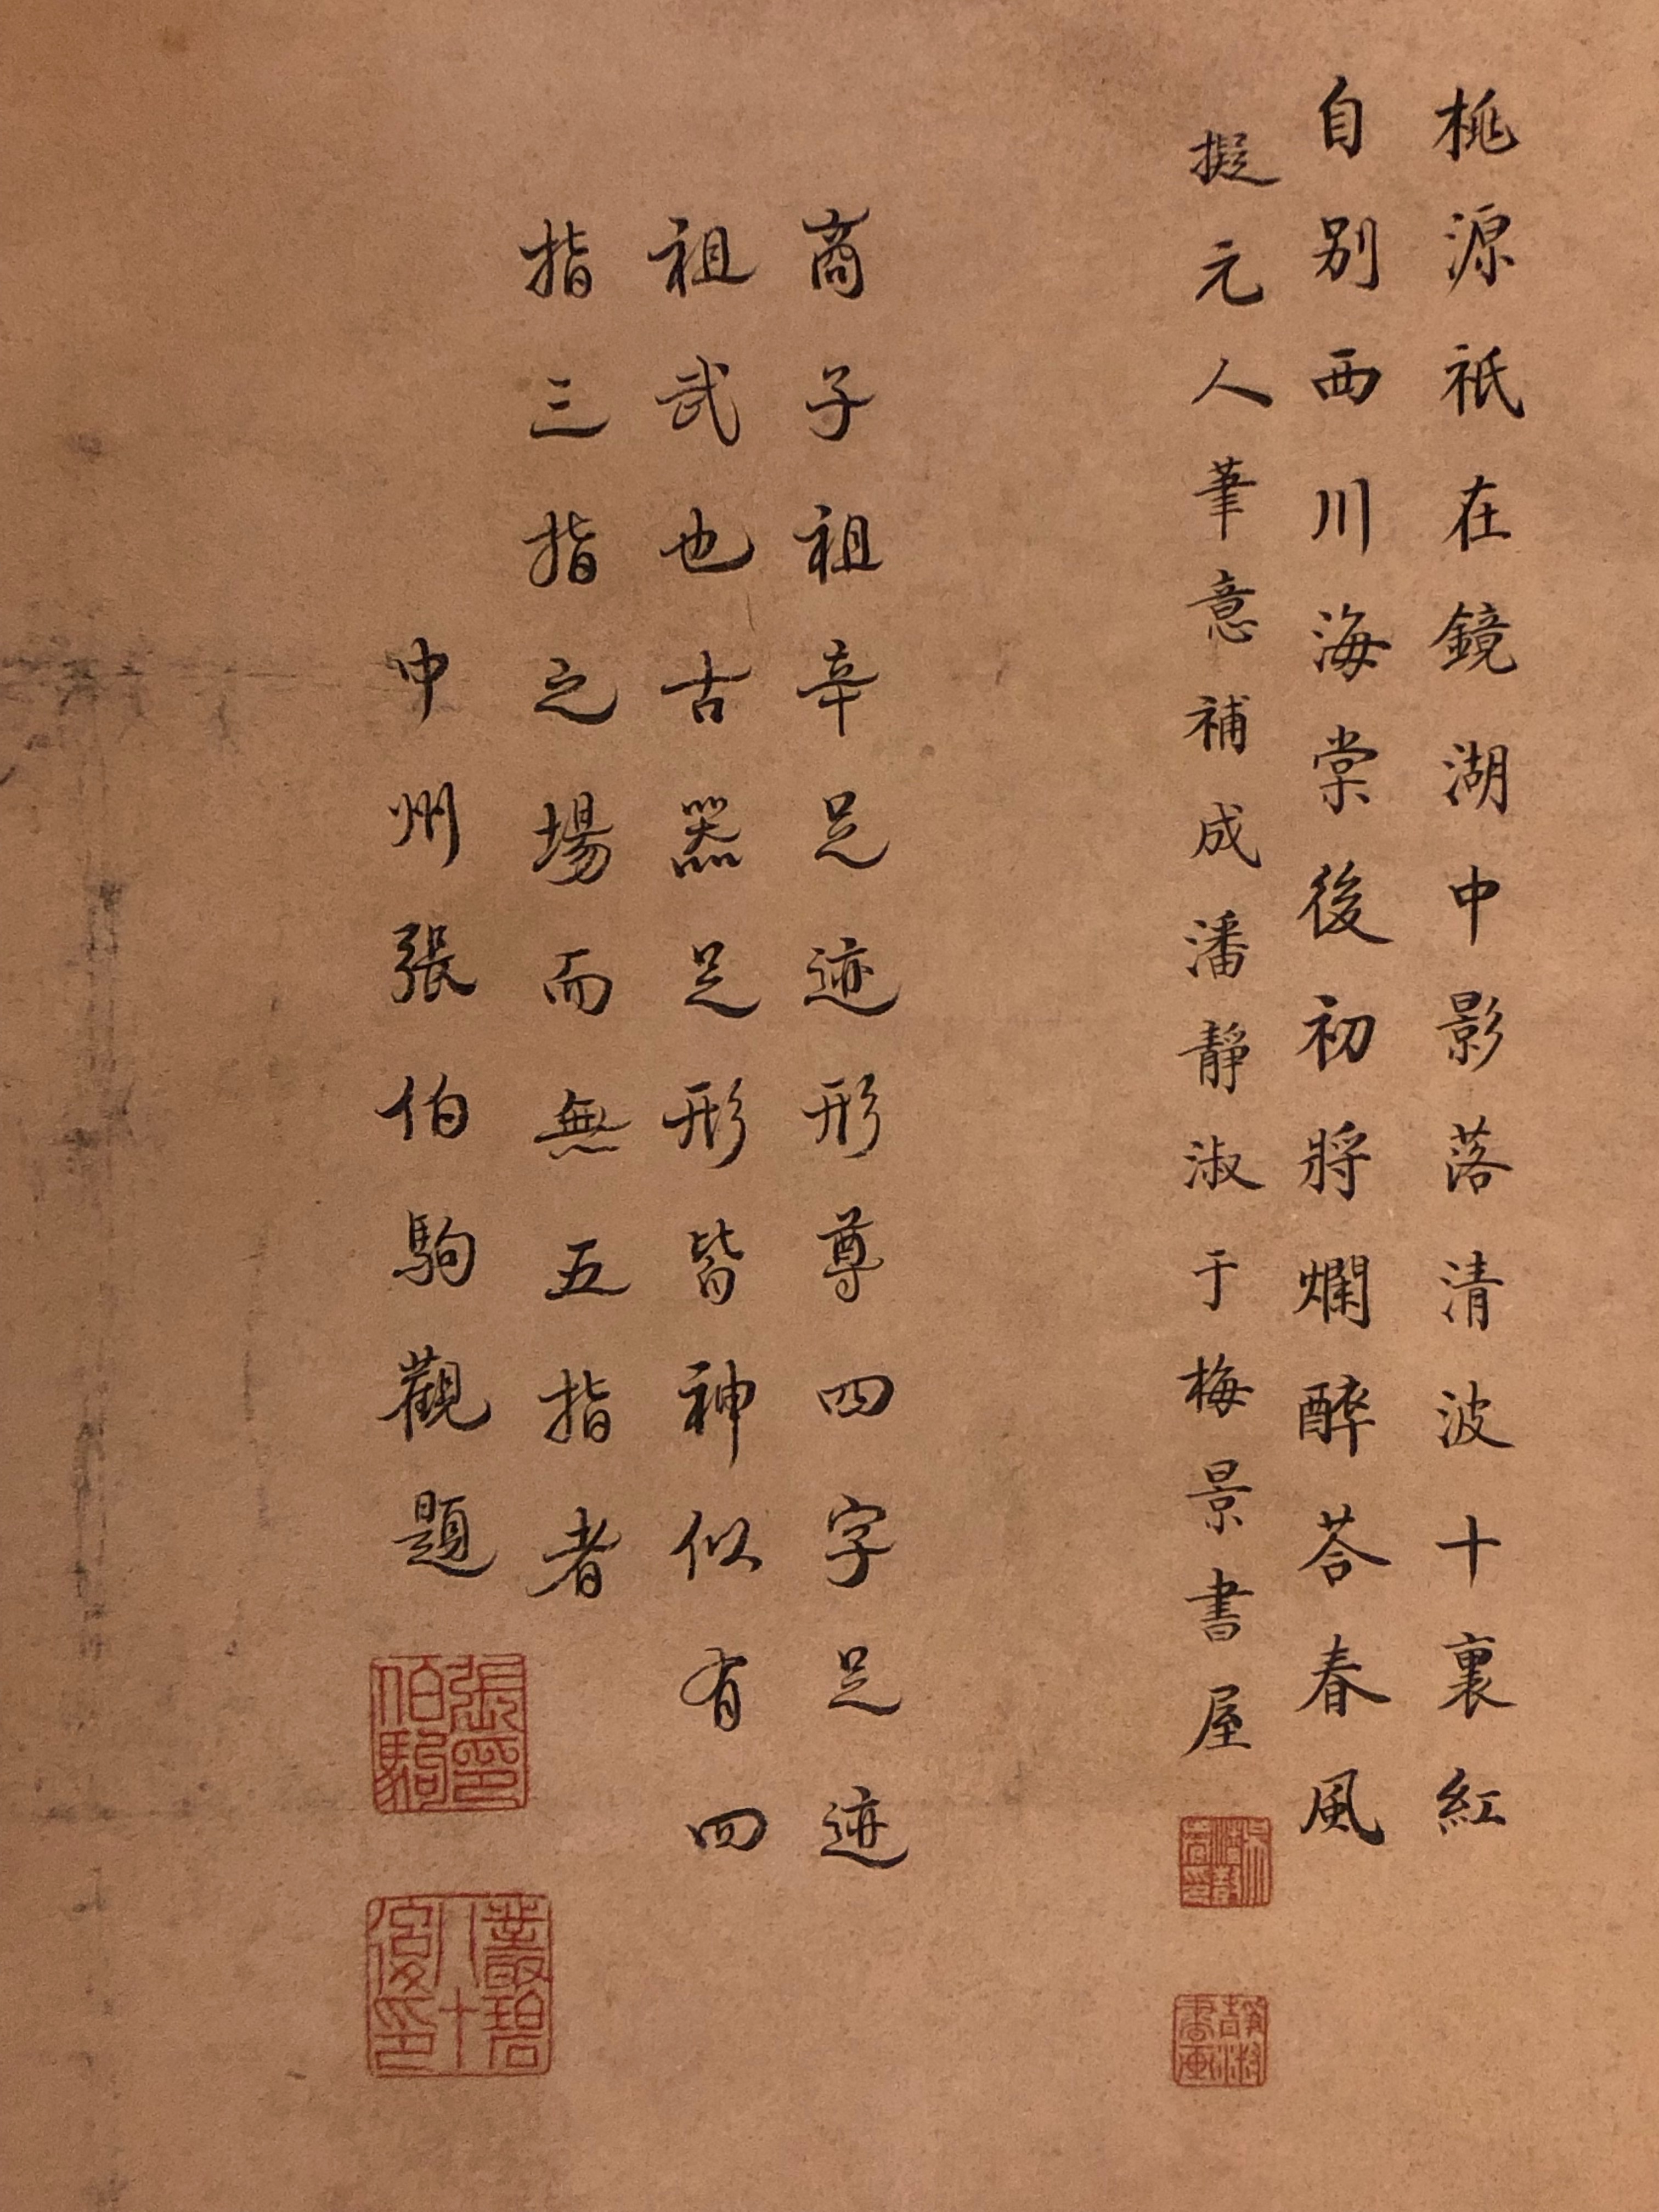 桃源祇在鏡湖中影落清波十裏紅
自別西川海棠後初將爛醉荅春風
擬元人筆意補成潘靜淑于梅景書屋
靜淑書畫
商子祖辛足迹形尊四字足迹
祖武也古器足形皆神似有四
指三指之場而無五指者
中州張伯駒觀題
張伯駒印
叢碧八十後印